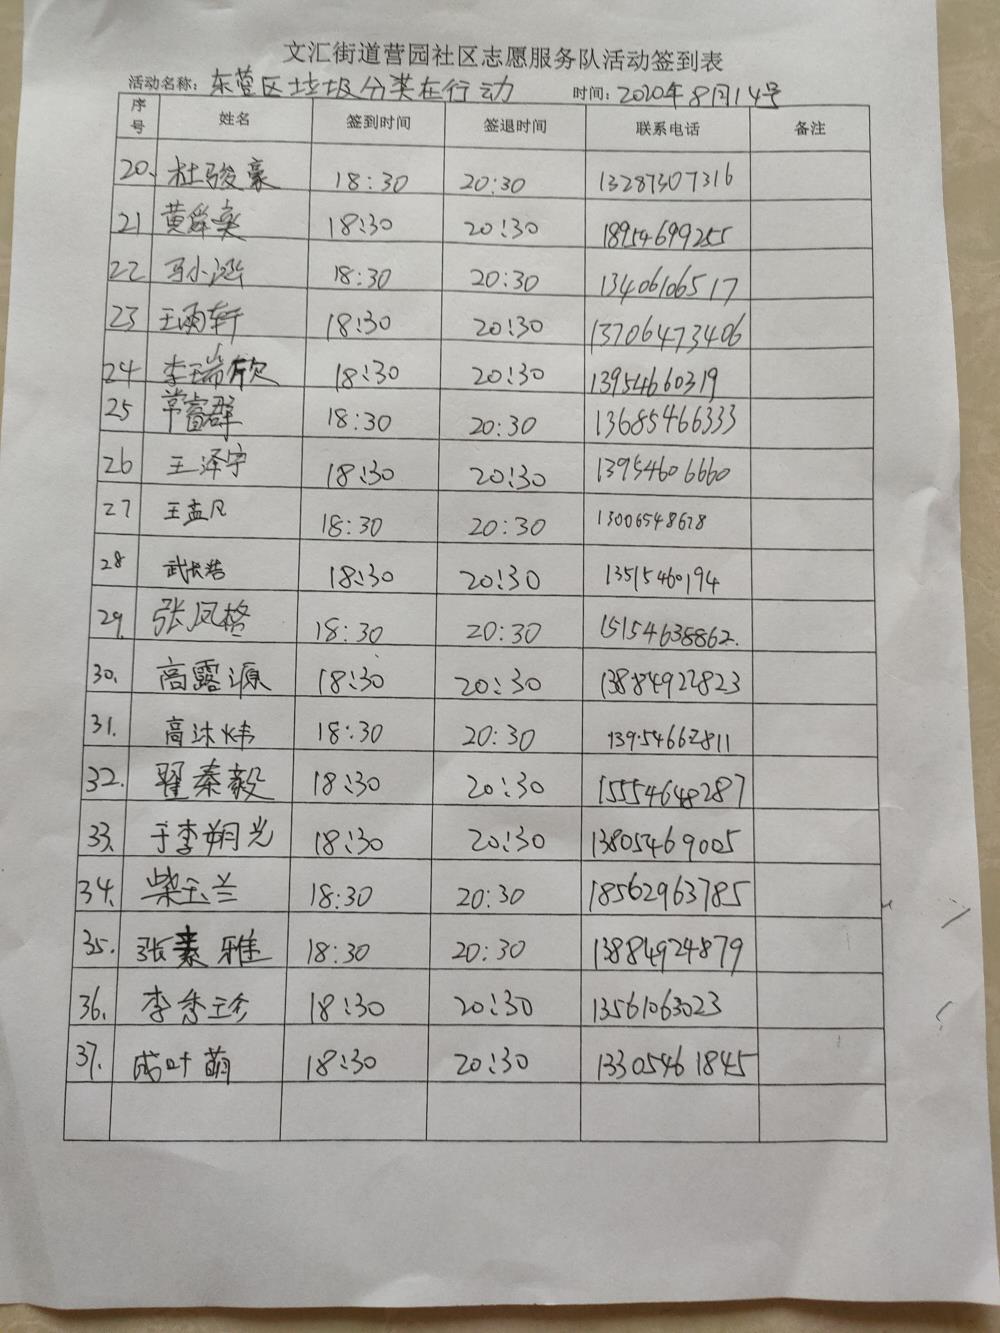 文汇街道营园社区志愿服务队活动签到表
活动名称：东营区垃圾分类在行动 时间：2020年8月14号
序号 姓名 签到时间 签退时间 联系电话 备注
20. 杜骏豪 18:30 20:30 13287307316
21 黄舜奕 18:30 20:30 18954699255
22 马小涵 18:30 20:30 13406106517
23 王雨轩 18:30 20:30 13706473406
24 李瑞欣 18:30 20:30 13954660319
25 常富群 18:30 20:30 13685466333
26 王泽宇 18:30 20:30 13954606660
27 王孟凡 18:30 20:30 13006548678
28 武长浩 18:30 20:30 13515460194
29. 张凤格 18:30 20:30 15154638862.
30. 高露源 18:30 20:30 13884922823
31. 高沐炜 18:30 20:30 13954662811
32. 翟秦毅 18:30 20:30 15554648287
33. 于李朔光 18:30 20:30 13805469005
34. 柴玉兰 18:30 20:30 18562963785
35. 张素雅 18:30 20:30 13884924879
36. 李秀珍 18:30 20:30 13561063023
37. 成叶萌 18:30 20:30 13305461845